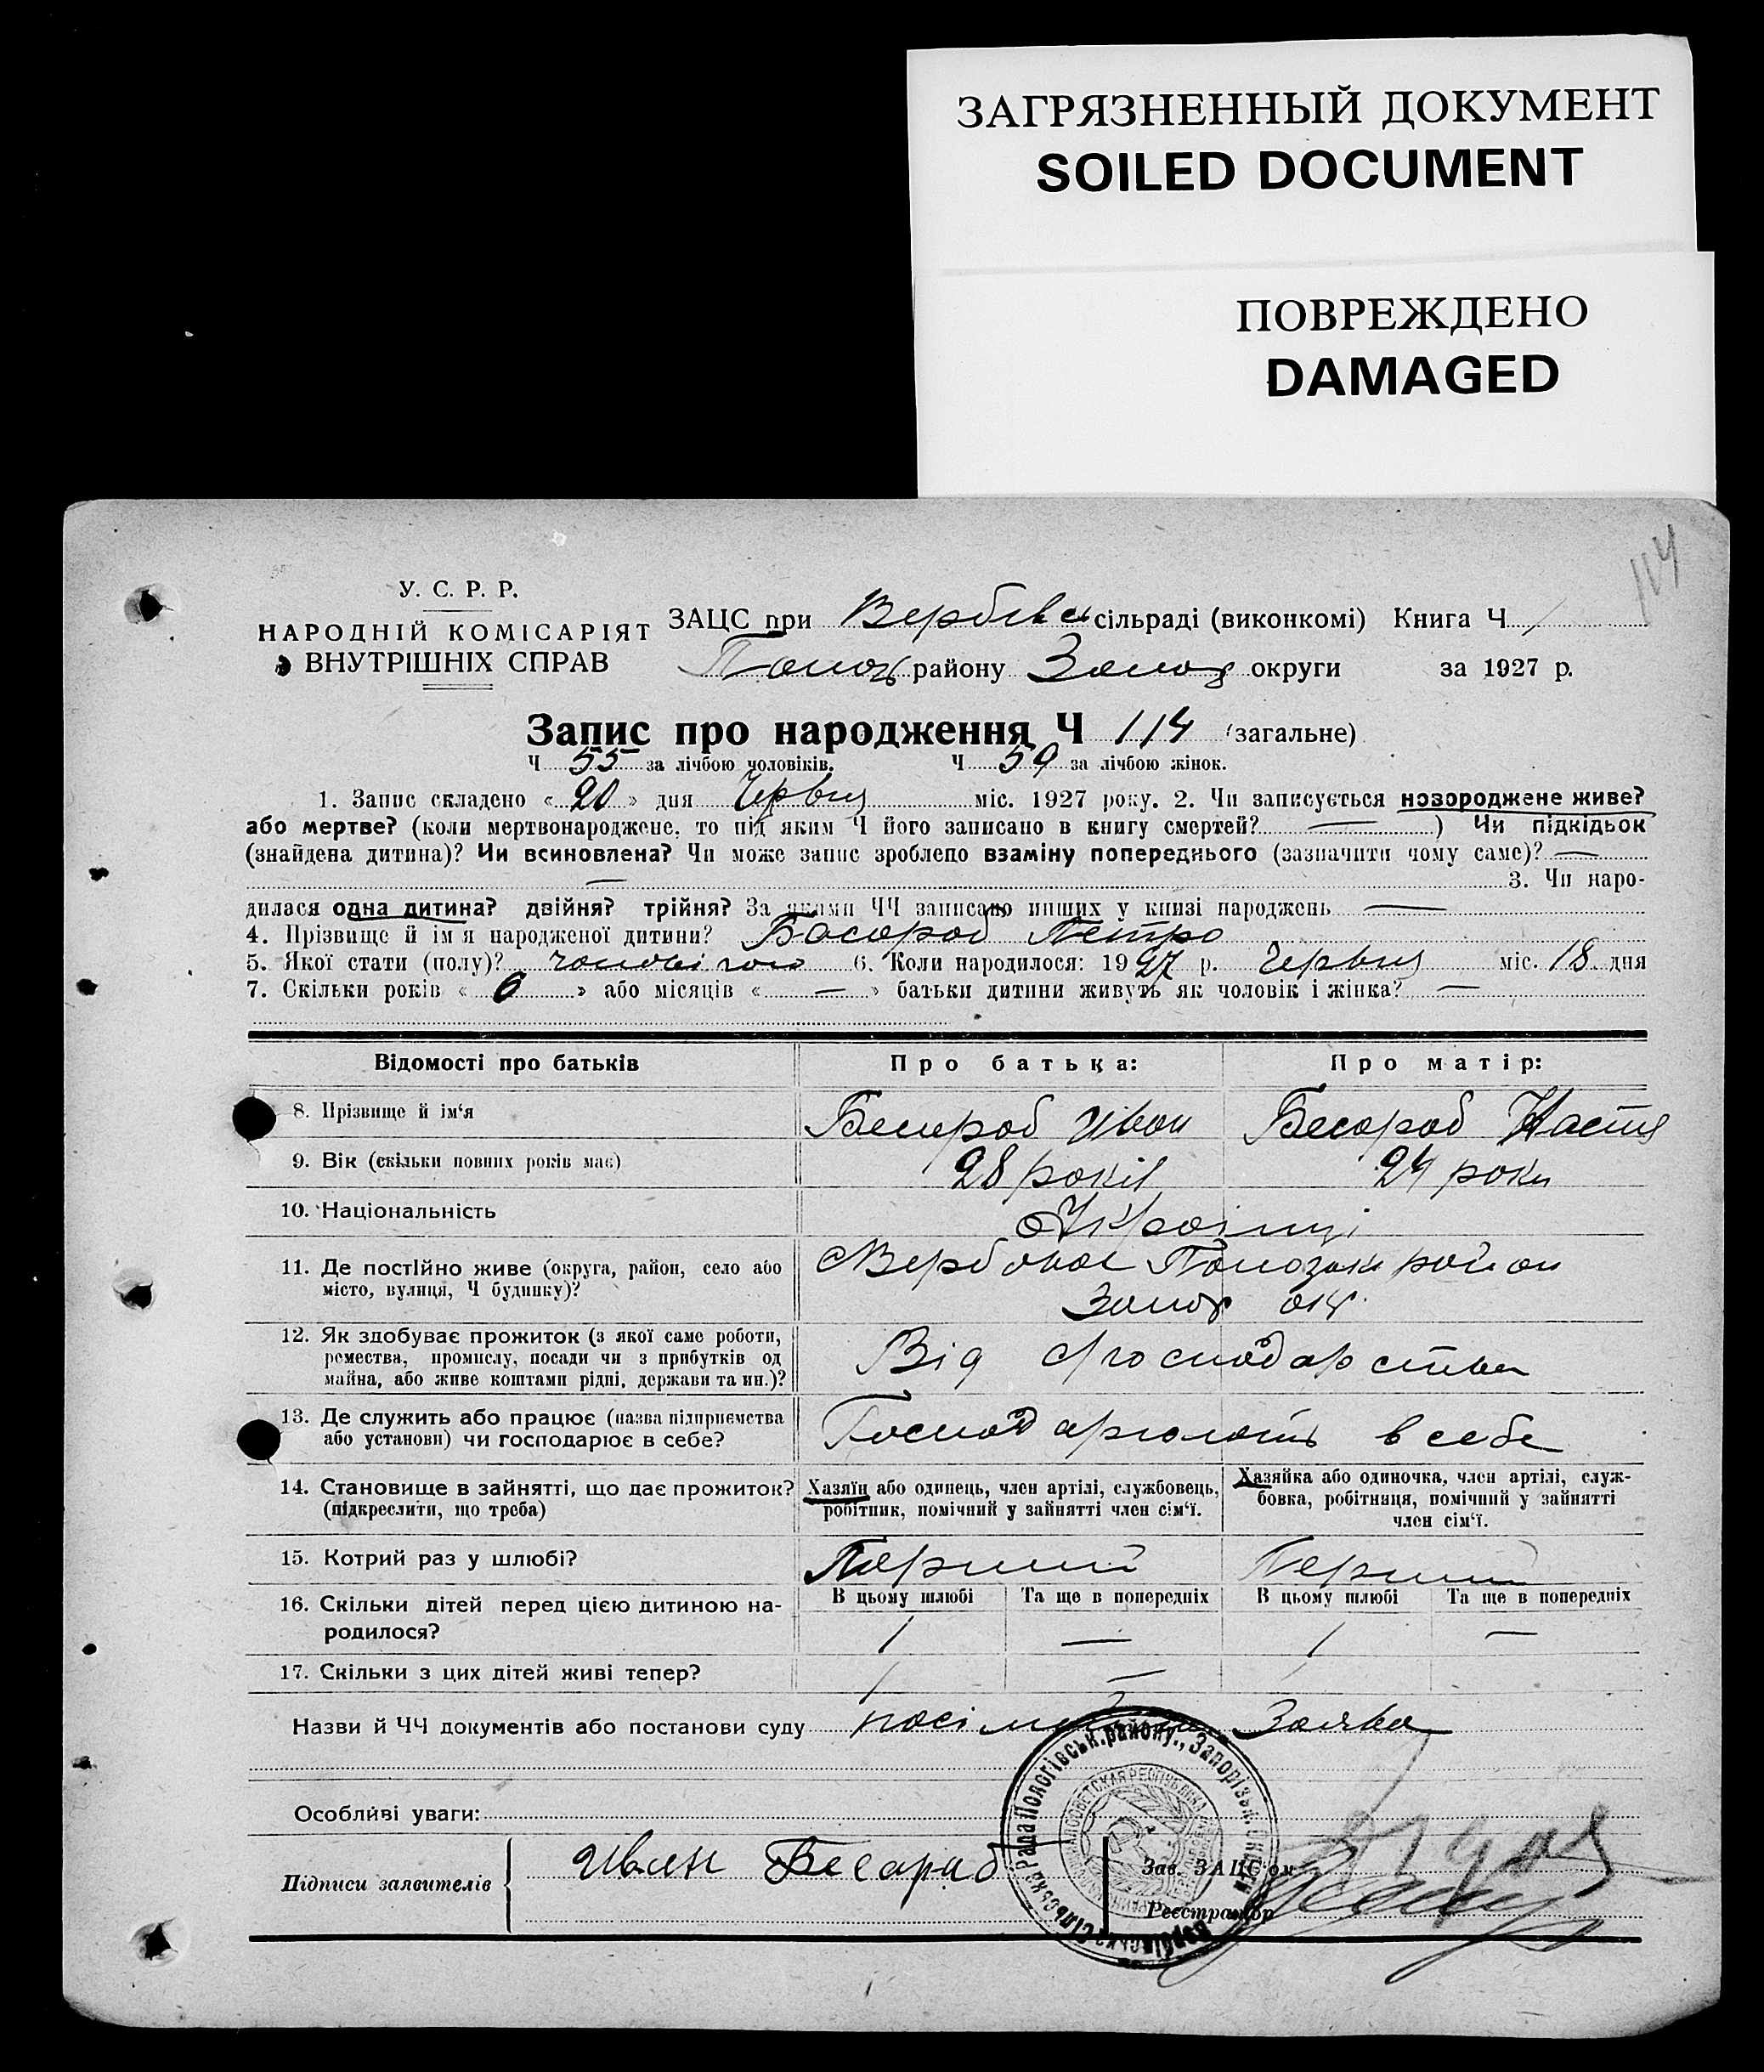 ЗАГРЯЗНЕННЫЙ ДОКУМЕНТ
SOILED DOCUMENT
ПОВРЕЖДЕНО
DAMAGED
114
У. С. Р. Р.
НАРОДНІЙ КОМІСАРІЯТ
ВНУТРІШНІХ СПРАВ
ЗАЦС при Вербівськ сільраді (виконкомі) Книга Ч 1
району Запор округи за 1927 р.
Запис про народження Ч 114 (загальне)
Ч 55 за лічбою чоловіків. Ч 59 за лічбою жінок.
1. Запис складено « 20 » дня Червня міс. 1927 року. 2. Чи записується новороджене живе?
або мертве? (коли мертвонароджене, то під яким Ч його записано в книгу смертей? — ) Чи підкідьок
(знайдена дитина)? Чи всиновлена? Чи може запис зроблено взаміну попереднього (зазначити чому саме)? —
— 3. Чи наро-
дилася одна дитина? двійня? трійня? За якими ЧЧ записано инших у книзі народжень —
4. Прізвище й ім'я народженої дитини? Басараб Петро
5. Якої статі (полу)? 6. Коли народилося: 1927 р. Червня міс. 18 дня
7. Скільки років « 6 » або місяців « — » батьки дитини живуть як чоловік і жінка? —
Відомості про батьків Про батька: Про матір:
8. Прізвище й ім'я Бесараб Иван Бесараб Настя
9. Вік (скільки повних років має) 28 років 24 роки
10. Національність Українці
11. Де постійно живе (округа, район, село або
місто, вулиця, Ч будинку)? район
Запор окр.
12. Як здобуває прожиток (з якої саме роботи,
ремества, промислу, посади чи з прибутків од
майна, або живе коштами рідні, держави та ин.)? Від господарства
13. Де служить або працює (назва підприємства
або установи) чи господарює в себе? Господарюють в себе
14. Становище в зайнятті, що дає прожиток?
(підкреслити, що треба)
Хазяїн або одинець, член артілі, службовець,
робітник, помічний у зайнятті член сім'ї.
Хазяйка або одиночка, член артілі, служ-
бовка, робітниця, помічний у зайнятті
член сім'ї.
15. Котрий раз у шлюбі? Перший Перший
В цьому шлюбі Та ще в попередніх В цьому шлюбі Та ще в попередніх
16. Скільки дітей перед цією дитиною на-
родилося? 1 — 1 —
17. Скільки з цих дітей живі тепер? 1 — 1
Назви й ЧЧ документів або постанови суду Заява
Особливі уваги:
Підписи заявителів Иван Бесараб
Зав. ЗАЦС'ом
Реєстратор
Вербівська Сільська Рада Пологівськ. району., Запорізьк. Округи